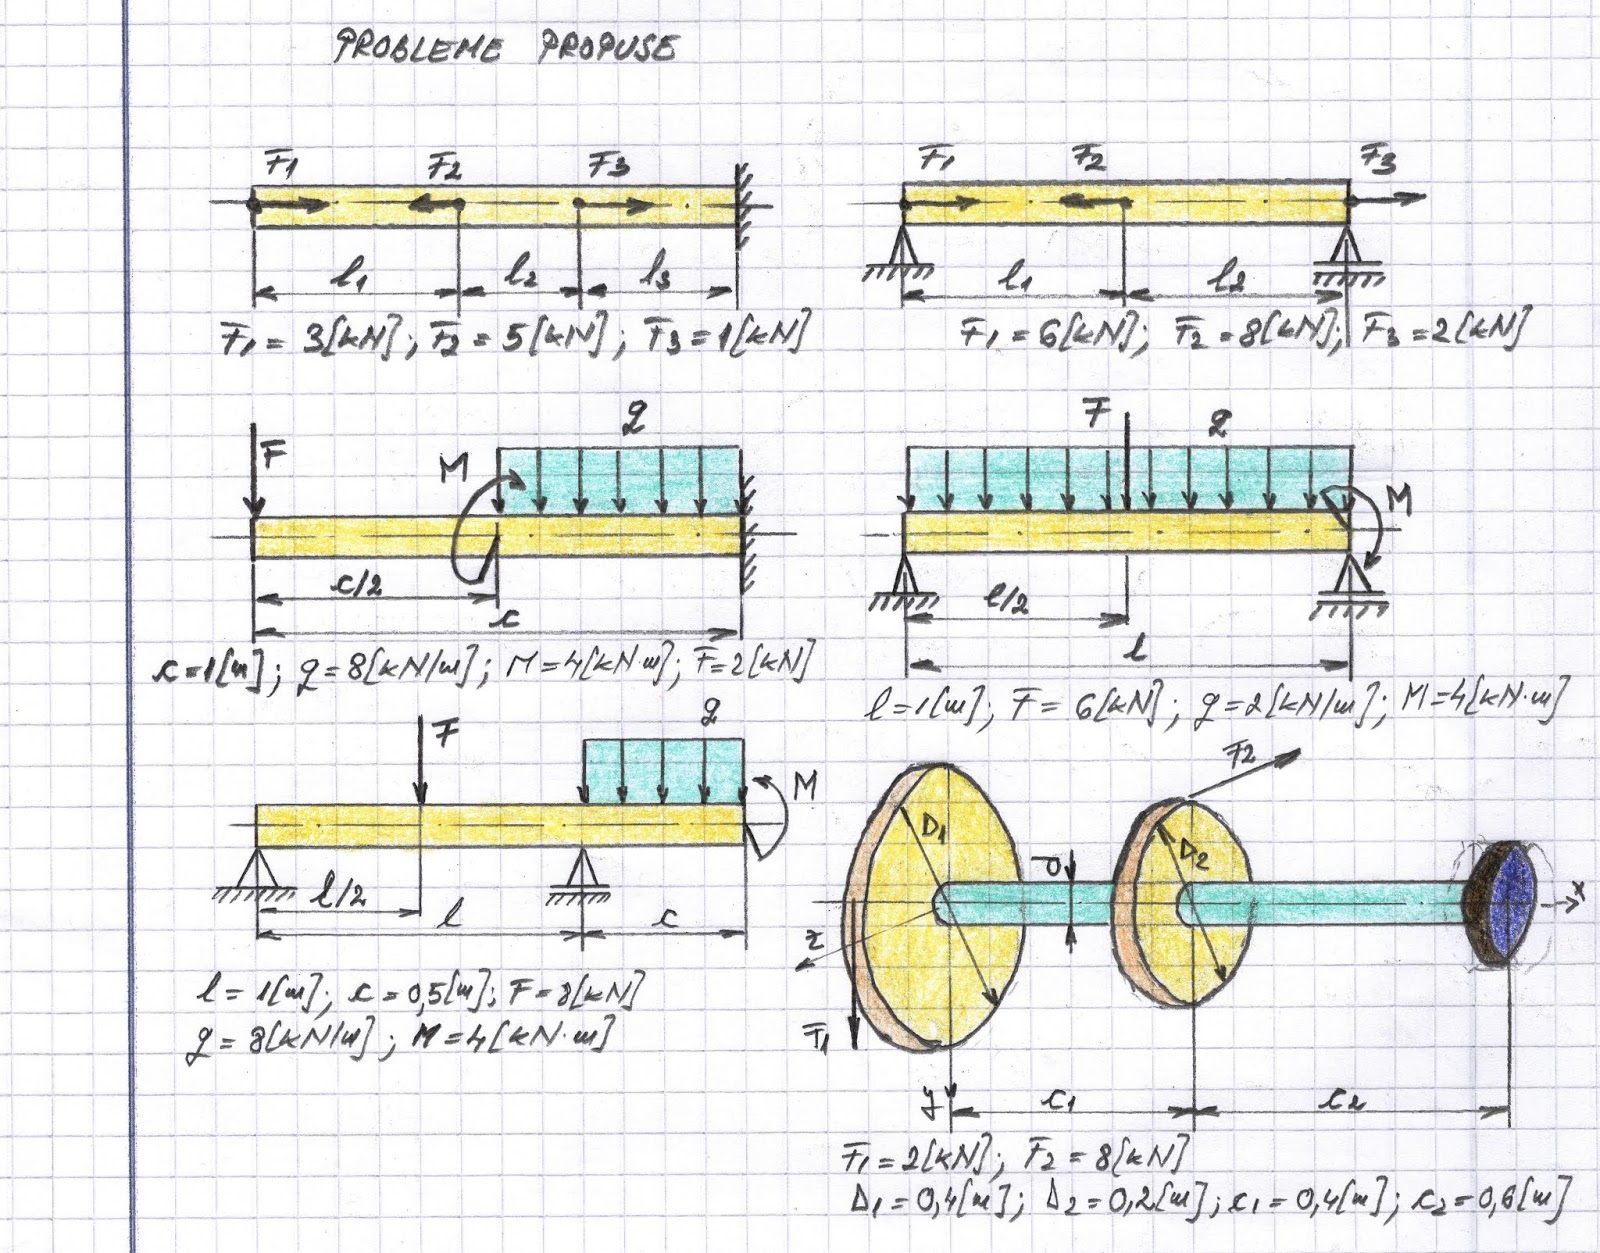 PROBLEME PROPUSE
F1 F2 F3
l1 l2 l3
F1 = 3[kN]; F2 = 5[kN]; F3 = 1[kN]
F1 F2 F3
l1 l2
F1 = 6[kN]; F2 = 8[kN]; F3 = 2[kN]
F M q
c/2
c
c=1[m]; q=8[kN/m]; M=4[kN·m]; F=2[kN]
F q M
l/2
l
l=1[m]; F=6[kN]; q=2[kN/m]; M=4[kN·m]
F q M
l/2
l c
l=1[m]; c=0,5[m]; F=8[kN]
q=8[kN/m]; M=4[kN·m]
F2
D1 d D2
x
z
F1
y c1 c2
F1=2[kN]; F2=8[kN]
D1=0,4[m]; D2=0,2[m]; c1=0,4[m]; c2=0,6[m]